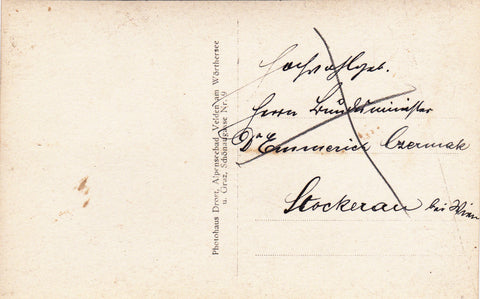 Photohaus Drore, Alpenseebad Velden am Wörthersee
u. Graz, Schönaugasse Nr. 9
Hochwohlgeb.
Herrn Bundesminister
Dr Emmerich Czermak
Stockerau bei Wien